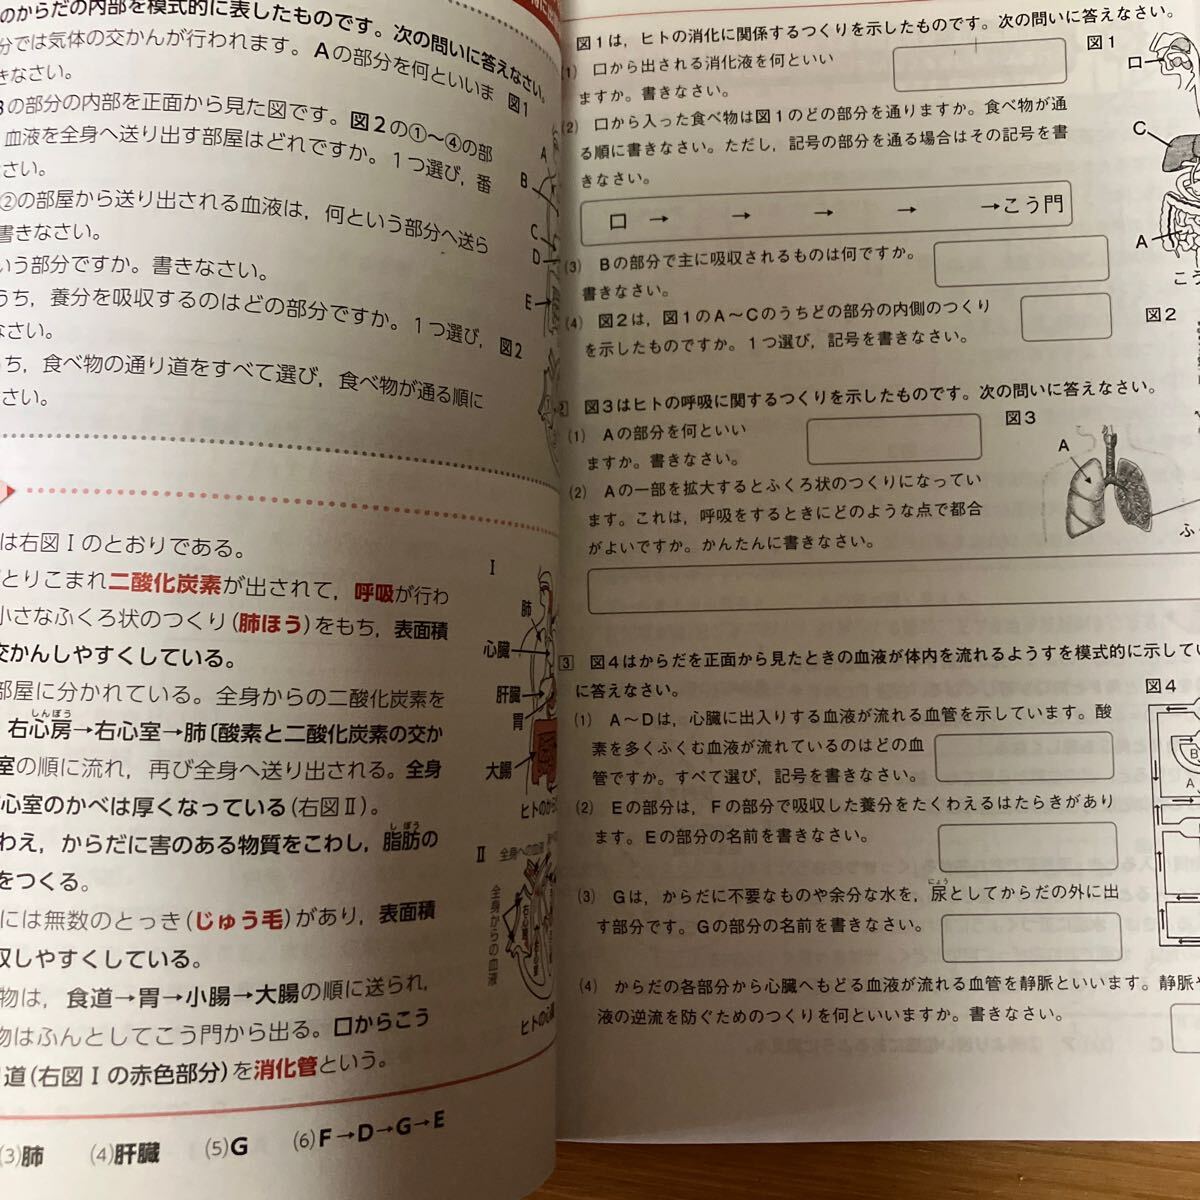 のからだの内部を模式的に表したものです。次の問いに答えなさい。
分では気体の交かんが行われます。Aの部分を何といいま
きなさい。
図1
Bの部分の内部を正面から見た図です。図2の①～④の部
血液を全身へ送り出す部屋はどれですか。1つ選び，番
さい。
②の部屋から送り出される血液は，何という部分へ送ら
書きなさい。
いう部分ですか。書きなさい。
うち，養分を吸収するのはどの部分ですか。1つ選び，
なさい。
図2
ち，食べ物の通り道をすべて選び，食べ物が通る順に
さい。
A
B
C
D
E
は右図Ⅰのとおりである。
とりこまれ二酸化炭素が出されて，呼吸が行わ
小さなふくろ状のつくり(肺ほう)をもち，表面積
交かんしやすくしている。
部屋に分かれている。全身からの二酸化炭素を
しんぼう
右心房→右心室→肺〔酸素と二酸化炭素の交か
室の順に流れ，再び全身へ送り出される。全身
心室のかべは厚くなっている(右図Ⅱ)。
しぼう
わえ，からだに害のある物質をこわし，脂肪の
をつくる。
には無数のとっき(じゅう毛)があり，表面積
収しやすくしている。
物は，食道→胃→小腸→大腸の順に送られ，
物はふんとしてこう門から出る。口からこう
道(右図Ⅰの赤色部分)を消化管という。
Ⅰ
肺
心臓
肝臓
胃
大腸
ヒトのから
Ⅱ
全身への血液
全身からの血液
ヒトの心
(3)肺 (4)肝臓 (5)G (6)F→D→G→E
図1は，ヒトの消化に関係するつくりを示したものです。次の問いに答えなさい。
(1) 口から出される消化液を何といい
ますか。書きなさい。
(2) 口から入った食べ物は図1のどの部分を通りますか。食べ物が通
る順に書きなさい。ただし，記号の部分を通る場合はその記号を書
きなさい。
口 → → → → →こう門
(3) Bの部分で主に吸収されるものは何ですか。
書きなさい。
(4) 図2は，図1のA～Cのうちどの部分の内側のつくり
を示したものですか。1つ選び，記号を書きなさい。
図1
口
C
A
こう
図2
2 図3はヒトの呼吸に関するつくりを示したものです。次の問いに答えなさい。
(1) Aの部分を何といい
ますか。書きなさい。
(2) Aの一部を拡大するとふくろ状のつくりになってい
ます。これは，呼吸をするときにどのような点で都合
がよいですか。かんたんに書きなさい。
図3
A
ふ
3 図4はからだを正面から見たときの血液が体内を流れるようすを模式的に示してい
に答えなさい。
(1) A～Dは，心臓に出入りする血液が流れる血管を示しています。酸
素を多くふくむ血液が流れているのはどの血
管ですか。すべて選び，記号を書きなさい。
(2) Eの部分は，Fの部分で吸収した養分をたくわえるはたらきがあり
ます。Eの部分の名前を書きなさい。
にょう
(3) Gは，からだに不要なものや余分な水を，尿としてからだの外に出
す部分です。Gの部分の名前を書きなさい。
(4) からだの各部分から心臓へもどる血液が流れる血管を静脈といいます。静脈や
液の逆流を防ぐためのつくりを何といいますか。書きなさい。
図4
B
A